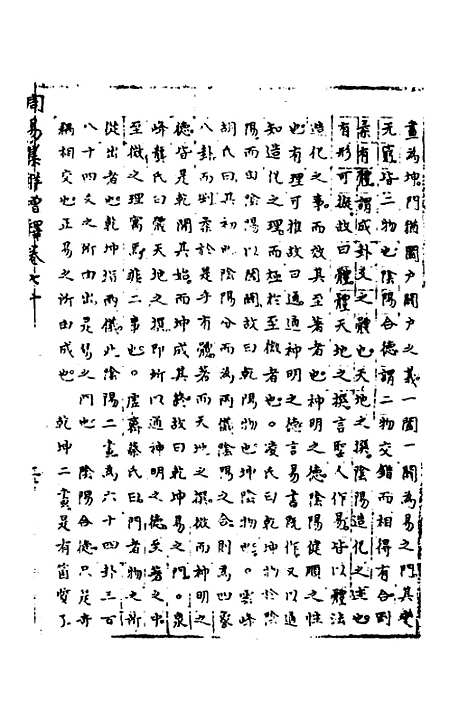 畫為坤門猶闔戶闢戶之義一闔一闢為易之門其變
无窮皆二物也陰陽合德謂二物交錯而相得有合剛
柔有體謂成卦爻之體也天地之撰陰陽造化之迹也
有形可擬故曰體體天地之撰言聖人作易皆以體法
造化之事而效其至著者也神明之德陰陽健順之性
也有理可推故曰通通神明之德言易書既作又以通
知造化之理而極於至微者也。凌氏曰乾坤物於陰
陽而由陰陽以闔闢故曰乾陽物也坤陰物也。雲峰
胡氏曰其初也陰陽分而為兩儀陰陽之合則為四象
八卦而剛柔於是乎有體著而天地之撰微而神明之
德皆是乾闢其始而坤成其終故曰乾坤易之門。泉
峰龔氏曰儀天地之撰即所以通神明之德至著之中
至微之理寓焉非二事也。虛齋蔡氏曰門者物之所
從出者也乾坤指兩儀此陰陽二畫為六十四卦三百
八十四爻之所由出是易之門也 陰陽合德只是奇
耦相交也正易之所由成也 乾坤二畫是有箇質了
周易集 卷七十